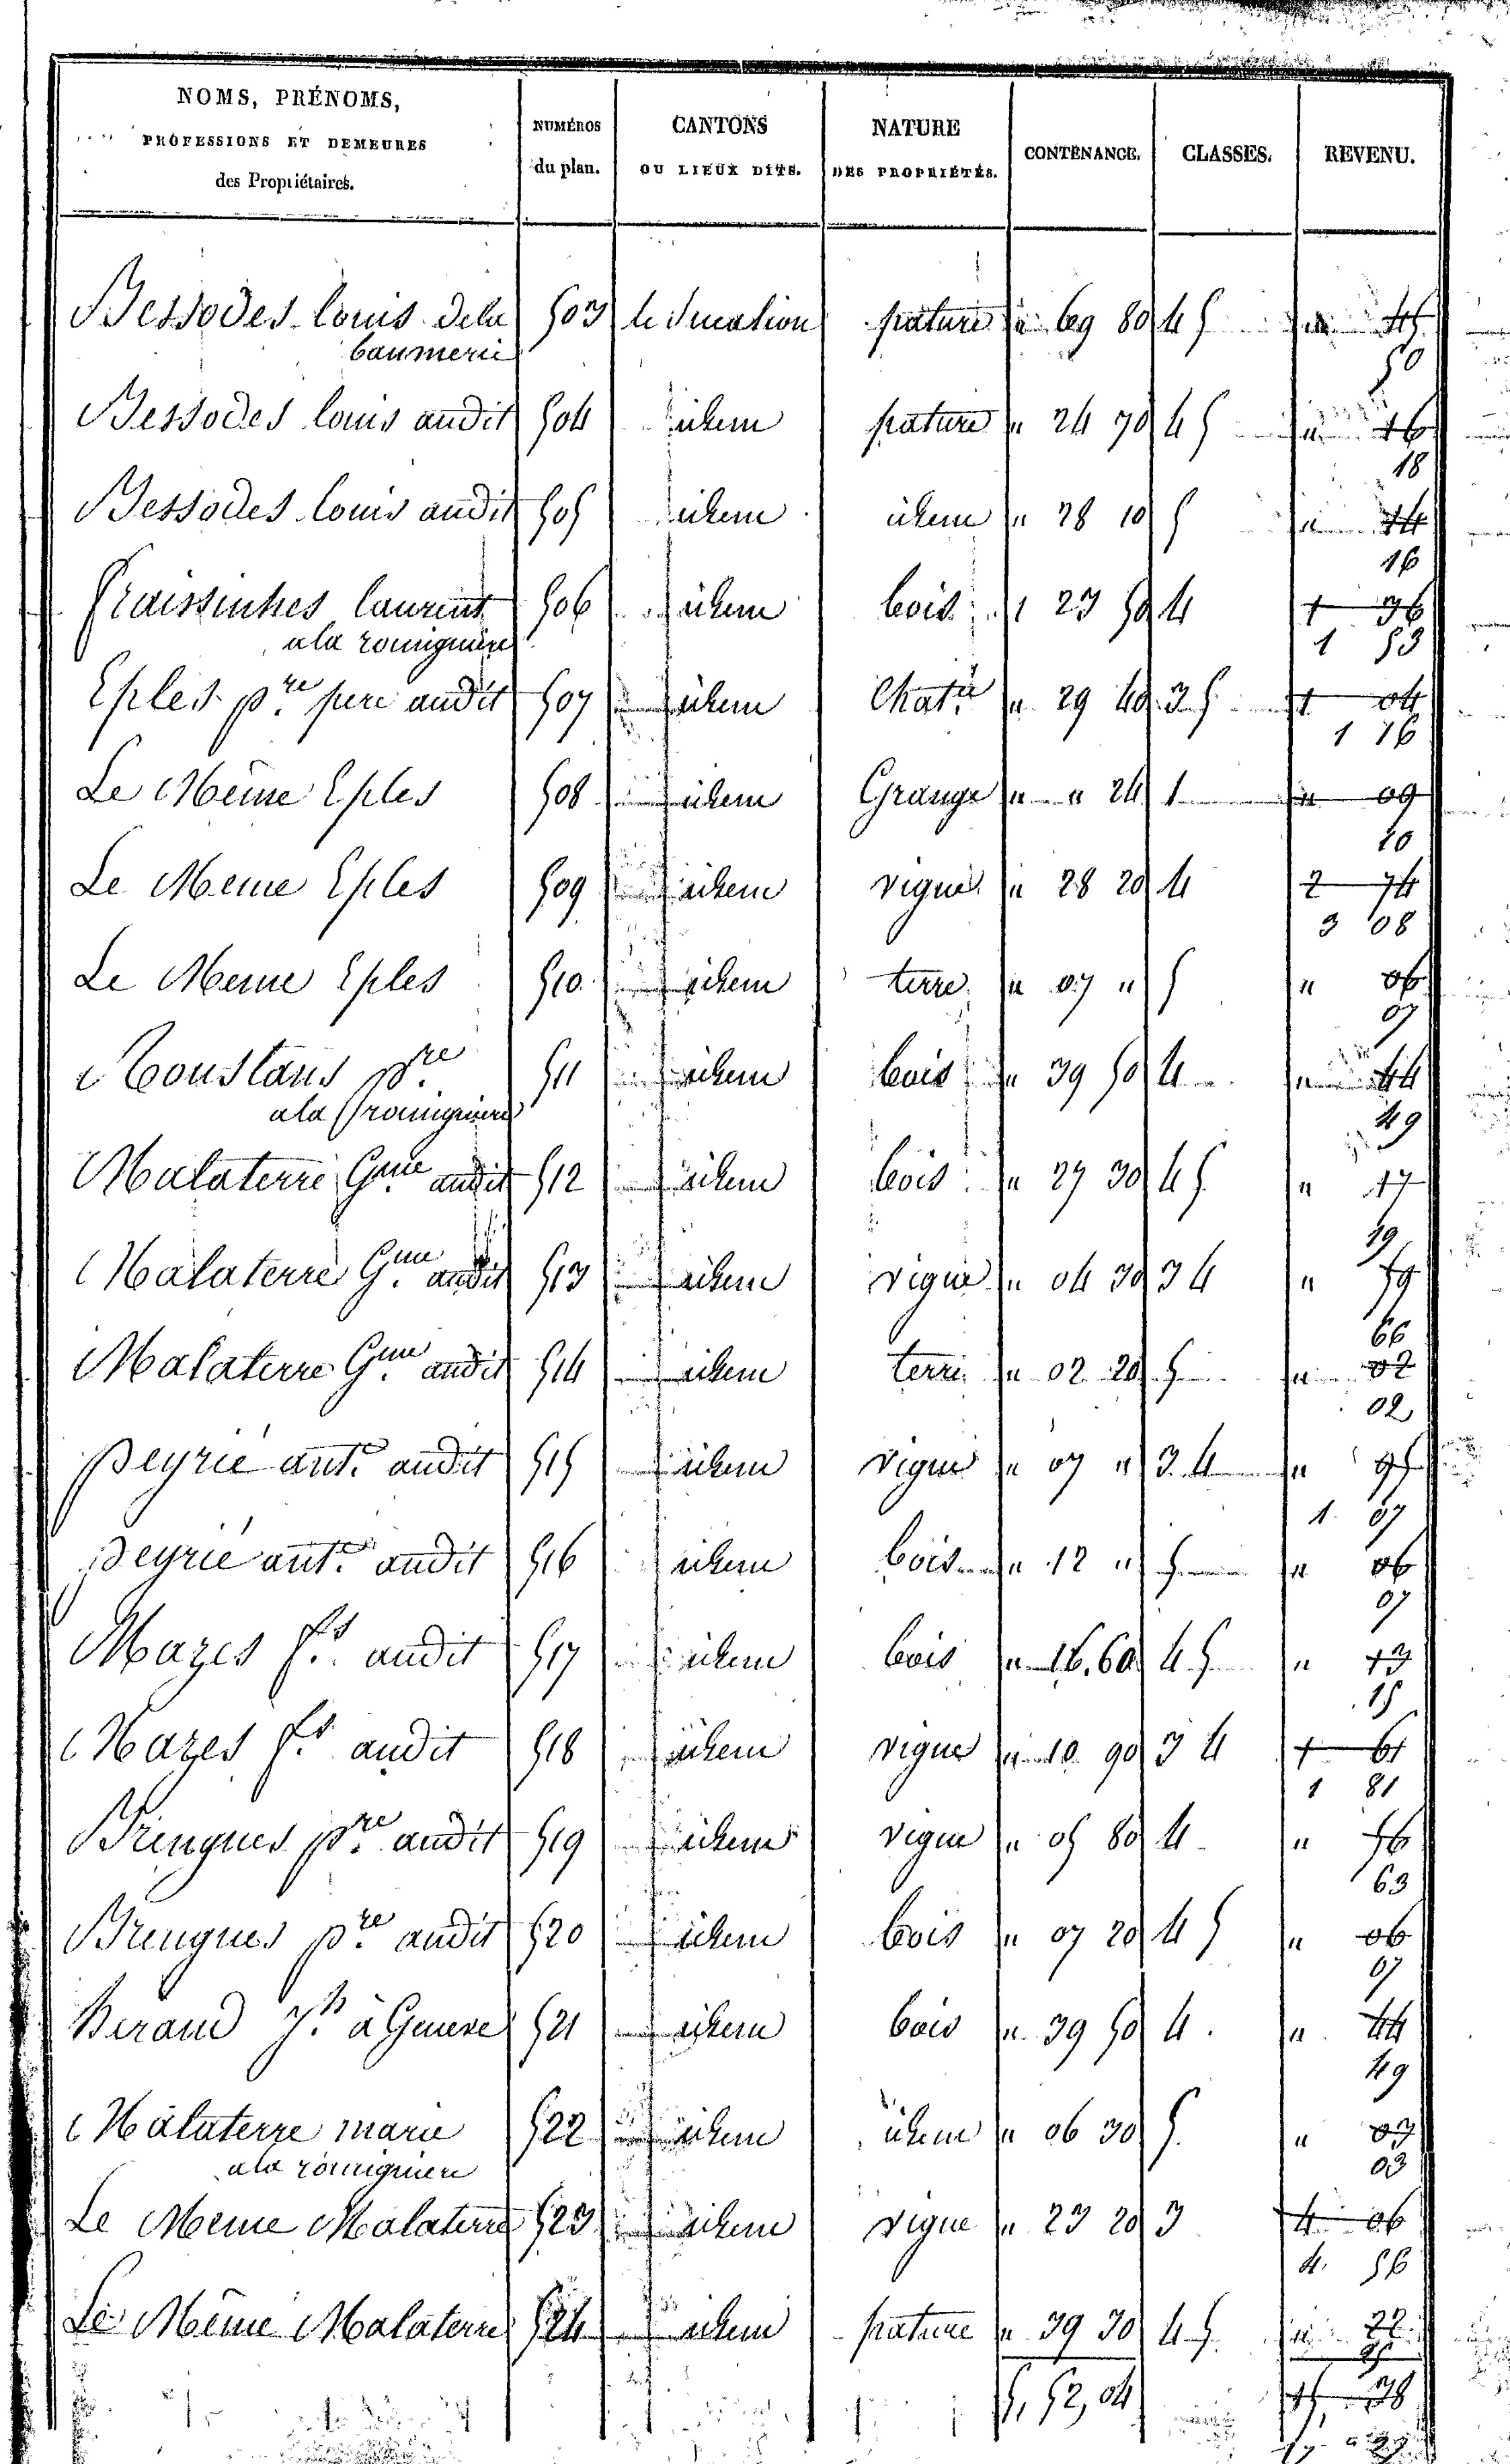 NOMS, PRÉNOMS, PROFESSIONS ET DEMEURES des Propriétaires. NUMÉROS du plan. CANTONS OU LIEUX DITS. NATURE DES PROPRIÉTÉS. CONTENANCE. CLASSES. REVENU.
Bessodes louis dela 503 pature " 69 80 4 5 " 45
baumerie 50
Bessodes louis audit 504 idem pature " 24 70 4 5 " 16
18
Bessodes louis audit 505 idem idem " 28 10 5 " 14
16
laurent 506 idem bois 1 23 50 4 1 36
ala romiguiere 1 53
Eples pre pere audit 507 idem " 29 40 3 5 1 04
1 16
Le Même Eples 508 idem Grange " " 24 1 " 09
10
Le Meme Eples 509 idem vigne " 28 20 4 2 74
3 08
Le Meme Eples 510 idem terre " 07 " 5 " 06
07
Coustans pre 511 idem bois " 39 50 4 " 44
ala romiguiere 49
Malaterre Gme audit 512 idem bois " 27 30 4 5 " 17
19
Malaterre Gme audit 513 idem vigne " 04 30 3 4 " 59
66
Malaterre Gme audit 514 idem terre " 02 20 5 " 02
02
Peyrie ant.e audit 515 idem vigne " 07 " 3 4 " 95
1 07
Peyrie ant.e audit 516 idem bois " 12 " 5 " 06
07
Mazes f.s audit 517 idem bois " 16,60 4 5 " 13
15
Mazes f.s audit 518 idem vigne " 10 90 3 4 1 61
1 81
Bringues pre audit 519 idem vigne " 05 80 4 " 56
63
Bringues pre audit 520 idem bois " 07 20 4 5 " 06
07
Beraud à 521 idem bois " 39 50 4 " 44
49
Malaterre marie 522 idem idem " 06 30 5 " 03
ala romiguiere 03
Le Meme Malaterre 523 idem vigne " 23 20 3 4 06
4 56
Le Même Malaterre 524 idem pature " 39 30 4 5 " 22
25
5, 52, 04